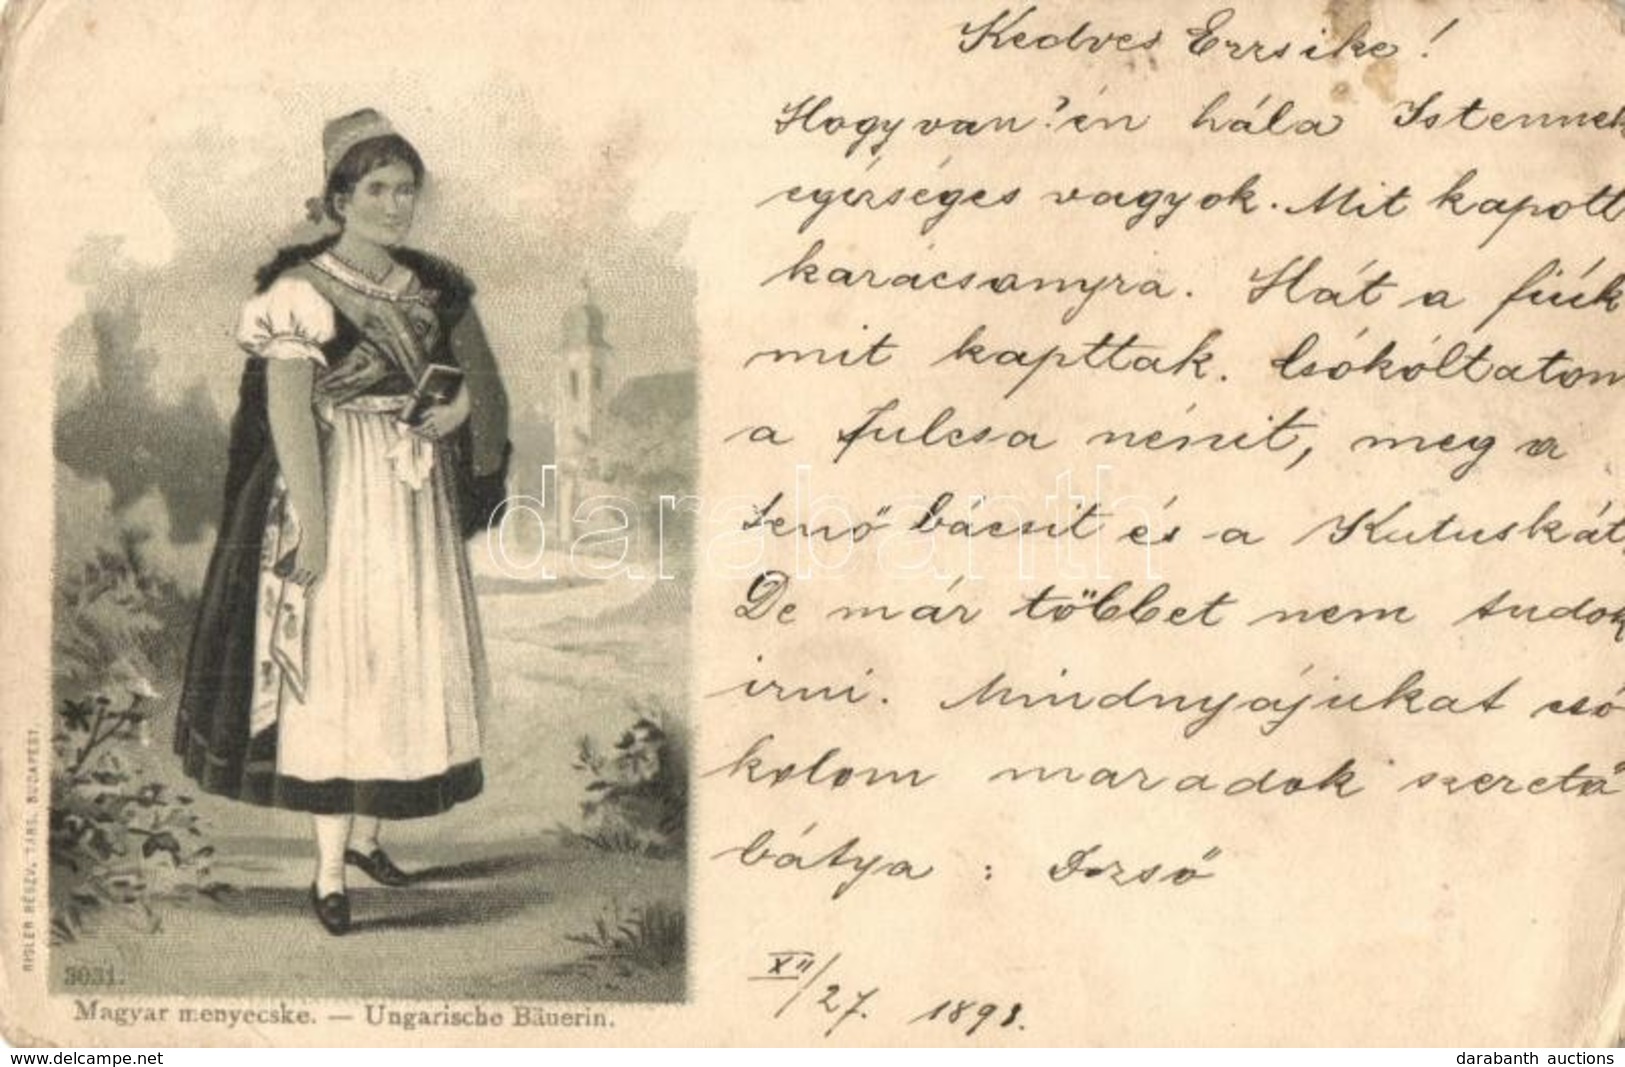 Kedves Erzsike!
Hogy van? én hála Istennek
egésséges vagyok. Mit kapott
karácsonyra. Hát a fiúk
mit kapttak. Csókóltatom
a Julcsa nénit, meg a
Jenő bácsit és a Kutuskát.
De már többet nem tudok
irni. Mindnyájukat csó
kolom maradok szerető
bátya: Dezső
XII/27. 1898.
3031.
Magyar menyecske. — Ungarische Bäuerin.
RIGLER RÉSZV. TÁRS. BUDAPEST.
darabanth
© www.delcampe.net
darabanth auctions